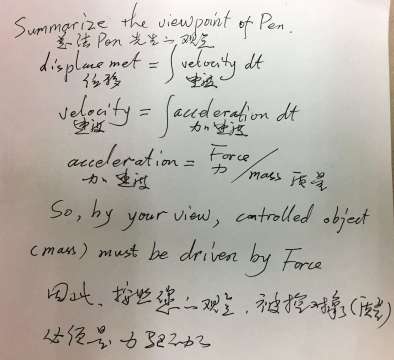 Summarize the viewpoint of Pen.
总结Pen先生的观点
displacemet = ∫ velocity dt
位移 速度
velocity = ∫ acceleration dt
速度 加速度
acceleration = Force / mass
加速度 力 质量
So, by your view, controlled object
(mass) must be driven by Force
因此, 按照您的观点, 被控对象(质量)
必须是力驱动